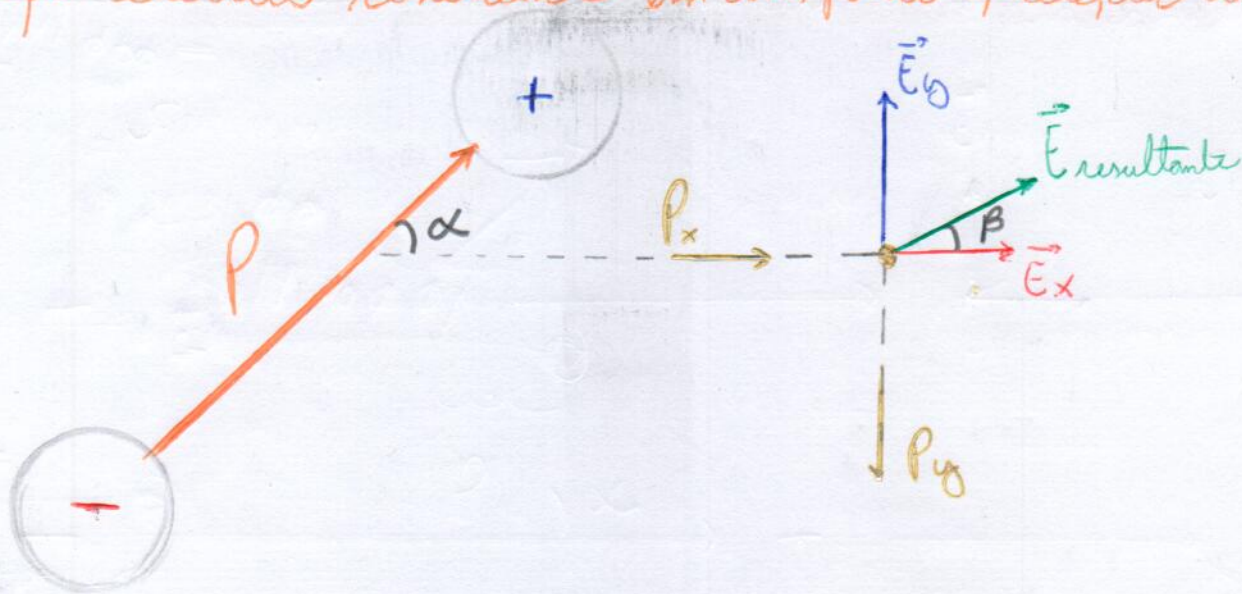 +
E⃗y
E⃗ resultante
P
α
Px
β
E⃗x
Py
-